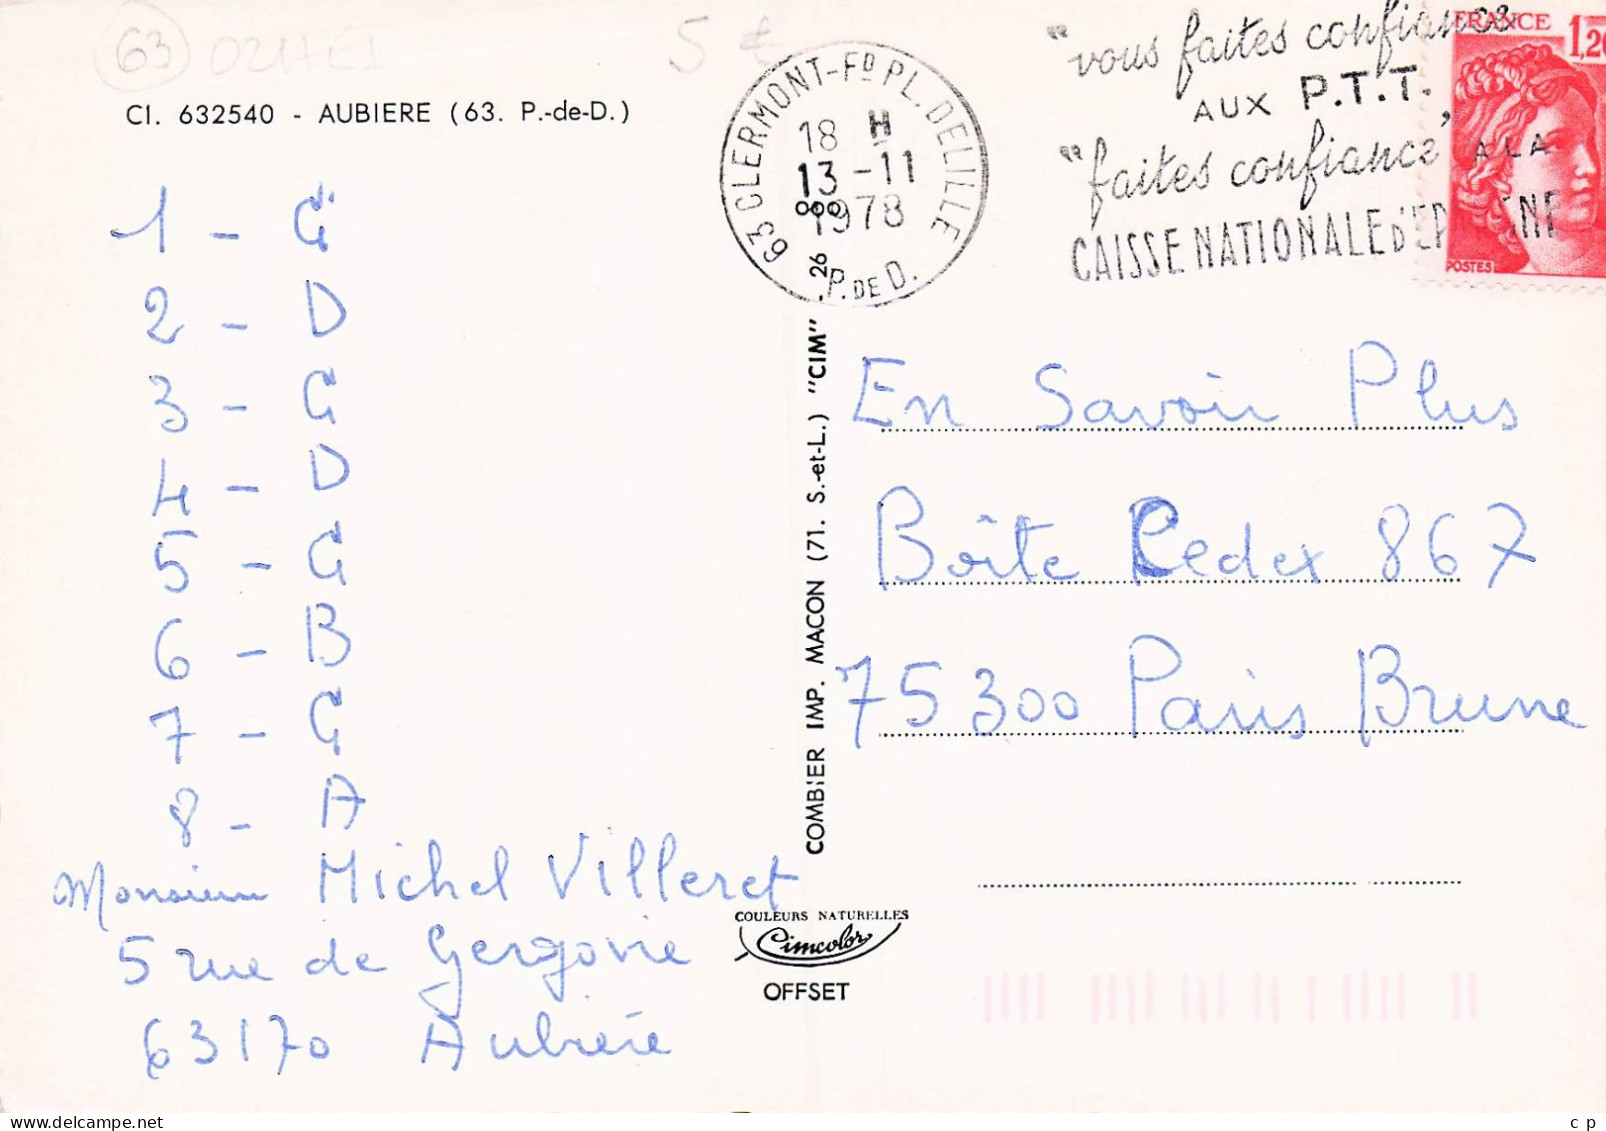 63 0217E1 5 €
Cl. 632540 - AUBIERE (63. P.-de-D.)
63 CLERMONT-Fd PL. DELILLE
18 H
13 -11
1978
26
P. DE D.
"vous faites confiance
AUX P.T.T."
"faites confiance" A LA
CAISSE NATIONALE d'EPARGNE
FRANCE 1,20
POSTES
1 - G
2 - D
3 - G
4 - D
5 - G
6 - B
7 - G
8 - A
Monsieur Michel Villeret
5 rue de Gergovie
63170 Aubière
COMBIER IMP. MACON (71. S.-et-L.) "CIM"
COULEURS NATURELLES
Cimcolor
OFFSET
En Savoir Plus
Boîte Cedex 867
75300 Paris Brune
c p